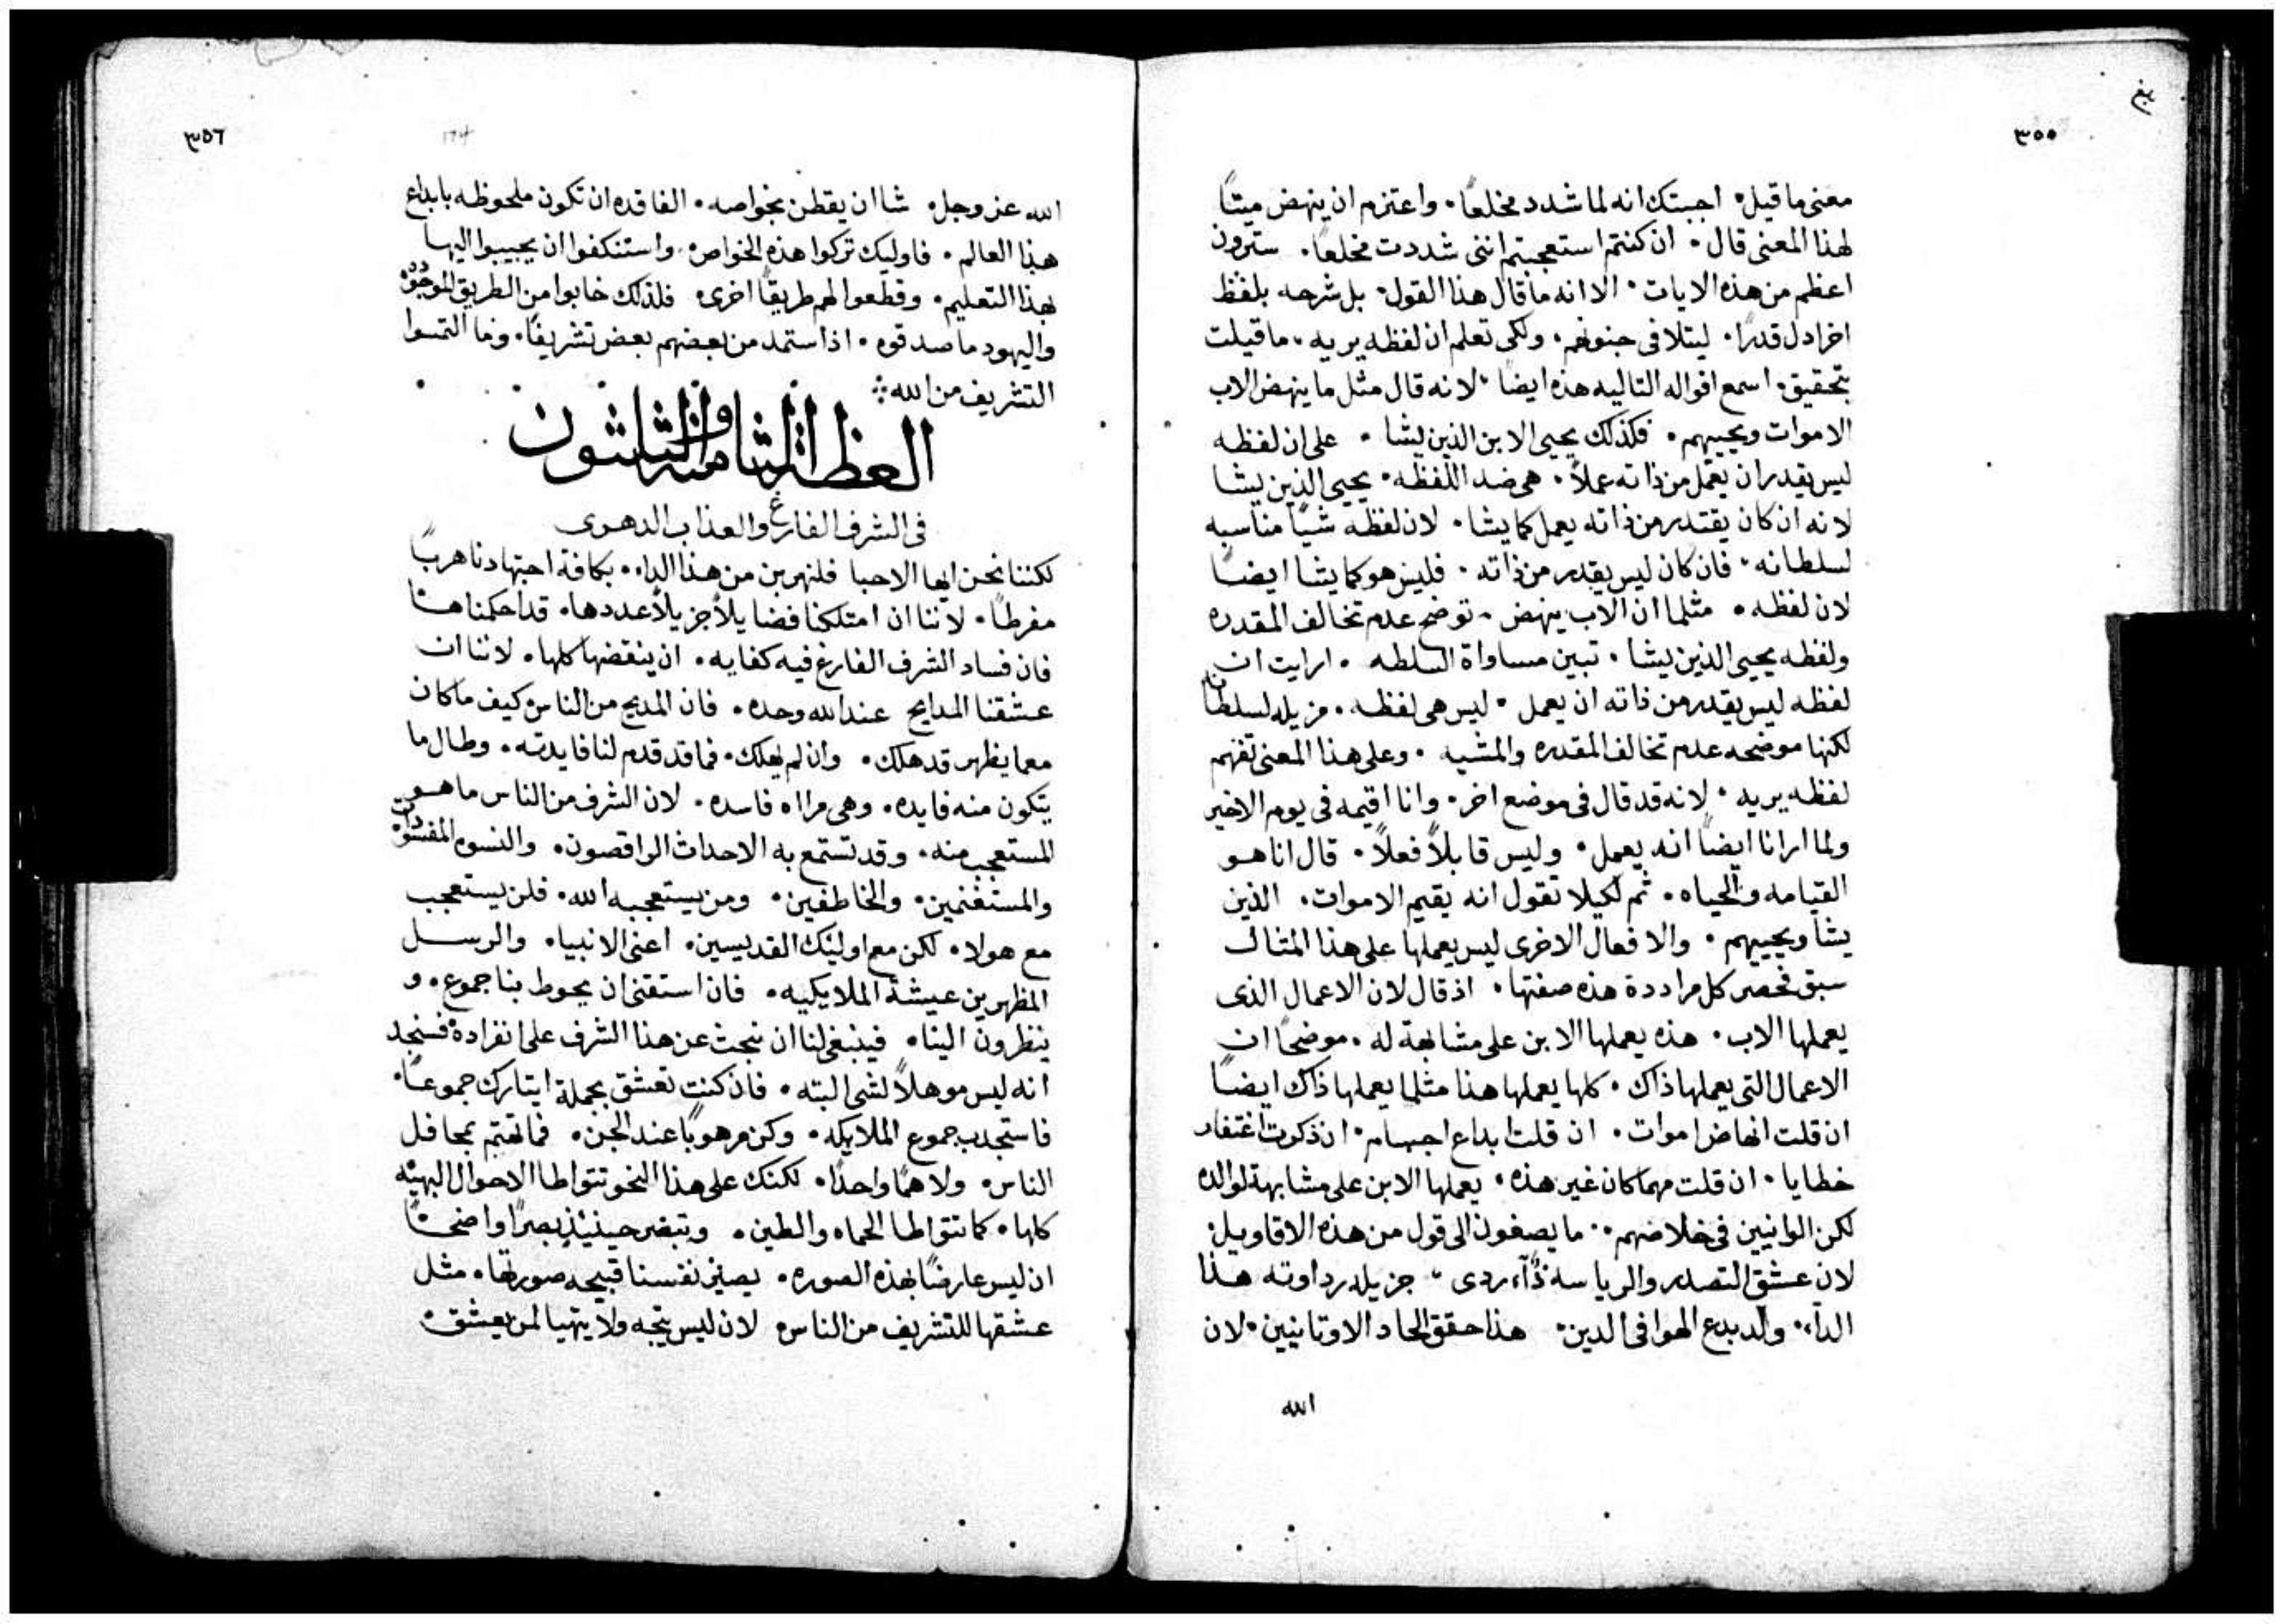 ٣٥٥
معنى ما قيل۰ اجبتك انه لما شدد مخلعًا۰ واعتزم ان ينهض ميتًا
لهذا المعنى قال۰ ان كنتم استعجبتم اننى شددت مخلعًا۰ سترون
اعظم من هذه الايات۰ الا انه ما قال هذا القول۰ بل شرحه بلفظ
اخر ادل قدرًا۰ ليتلافى جنونهم۰ ولكى تعلم ان لفظه يريه۰ ما قيلت
بتحقيق۰ اسمع اقواله التاليه هذه ايضا۰ لانه قال مثل ما ينهض الاب
الاموات ويحييهم۰ فكذلك يحيى الابن الذين يشا۰ على ان لفظه
ليس يقدر ان يعمل من ذاته عملاً۰ هى ضد اللفظه۰ يحيى الذين يشا
لانه ان كان يقتدر من ذاته يعمل كما يشا۰ لان لفظه شيًا مناسبه
لسلطانه۰ فان كان ليس يقدر من ذاته۰ فليس هو كما يشا ايضًا
لان لفظه۰ مثلما ان الاب ينهض۰ توضح عدم تخالف المقدره
ولفظه يحيى الذين يشا۰ تبين مساواة السلطه۰ ارايت ان
لفظه ليس يقدر من ذاته ان يعمل۰ ليس هى لفظه۰ مزيله لسلطانه
لكنها موضحه عدم تخالف المقدره والمشيه۰ وعلى هذا المعنى تفهم
لفظه يريه۰ لانه قد قال فى موضع اخر۰ وانا اقيمه فى يوم الاخير
ولما ارانا ايضًا انه يعمل۰ وليس قابلاً فعلاً۰ قال انا هو
القيامه والحياه۰ ثم لكيلا تقول انه يقيم الاموات۰ الذين
يشا ويحييهم۰ والافعال الاخرى ليس يعملها على هذا المثال
سبق فحصر كل مراددة هذه صفتها۰ اذ قال لان الاعمال الذى
يعملها الاب۰ هذه يعملها الابن على مشابهة له۰ موضحًا ان
الاعمال التى يعملها ذاك۰ كلها يعملها هذا مثلما يعملها ذاك ايضًا
ان قلت انهاض اموات۰ ان قلت ابداع اجسام۰ ان ذكرت اغتفار
خطايا۰ ان قلت مهما كان غير هذه۰ يعملها الابن على مشابهة لوالده
لكن الوانيين فى خلاصهم۰ ما يصغون الى قول من هذه الاقاويل۰
لان عشق التصدر والرياسه دآء ردى۰ جزيله رداوته هذا
الدآء۰ ولد بدع الهوا فى الدين۰ هذا حقق الحاد الاوثانيين۰ لان
الله
٣٥٦
الله عز وجل۰ شا ان يفطن بخواصه۰ الفاقده ان تكون ملحوظه بابداع
هذا العالم۰ فاوليك تركوا هذه الخواص۰ واستنكفوا ان يجيبوا اليها
بهذا التعليم۰ وقطعوا لهم طريقًا اخرى۰ فلذلك خابوا من الطريق الموجوده
واليهود ما صدقوه۰ اذ استمد من بعضهم بعض تشريفًا۰ وما التمسوا
التشريف من الله
العظة الثامنة والثلثون
فى الشرف الفارغ والعذاب الدهرى
لكننا نحن ايها الاحبا فلنهربن من هذا الداء۰ بكافة اجتهادنا هربًا
مفرطًا۰ لاننا ان امتلكنا فضايلاً جزيلاً عددها۰ قد احكمناها
فان فساد الشرف الفارغ فيه كفايه۰ ان ينقضها كلها۰ لاننا ان
عشقنا المدايح عند الله وحده۰ فان المديح من الناس كيف ما كان
معما يظهر قد هلك۰ وان لم يهلك۰ فما قد قدم لنا فايدته۰ وطال ما
يتكون منه فايده۰ وهى مرااه فاسده۰ لان الشرف من الناس ما هو
المستعجب منه۰ وقد تستمتع به الاحداث الراقصون۰ والنسوه
والمستغنمين۰ والخاطفين۰ ومن يستعجبه الله۰ فلن يستعجب
مع هولا۰ لكن مع اوليك القديسين۰ اعنى الانبيا۰ والرسل
المظهرين عيشة الملايكيه۰ فان استقنى ان يحوط بنا جموع۰ و
ينظرون الينا۰ فينبغى لنا ان نبحث عن هذا الشرف على انفراده فسنجد
انه ليس موهلاً لشى البته۰ فان كنت تعشق بجملة ايتارك جموعًا۰
فاستجدب جموع الملايكه۰ وكن مرهوبًا عند الجن۰ فما تهتم بمحافل
الناس۰ ولا همًا واحدًا۰ لكنك على هذا النحو تتواطا الاحوال البهيه
كلها۰ كما تتواطا الحماه والطين۰ وتبصر حينيذ بصرًا واضحًا
ان ليس عارضًا بهذه الصوره۰ يصير نفسنا قبيحه صورتها۰ مثل
عشقها للتشريف من الناس۰ لان ليس يتجه ولا يتهيا لمن يعشق۰